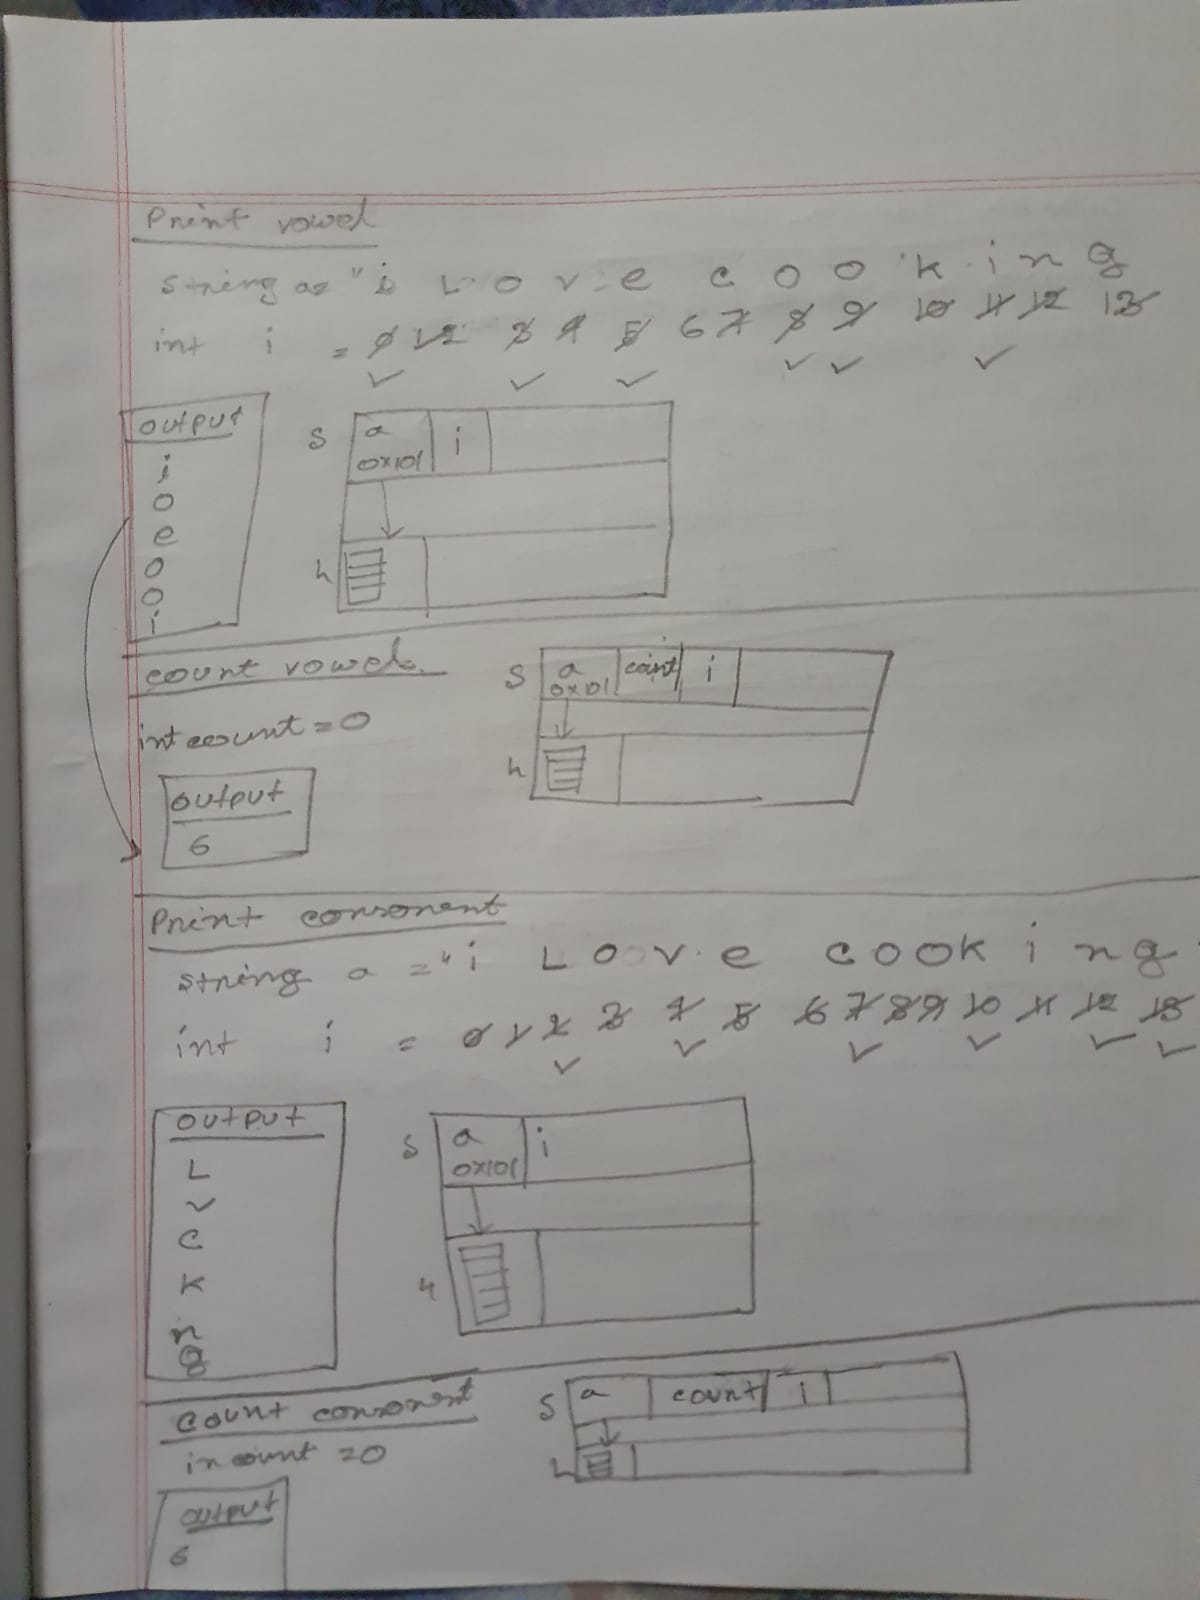 Print vowel
string a = "i L o v e c o o k i n g
int i = 0 1 2 3 4 5 6 7 8 9 10 11 12 13
output
i
o
e
o
o
i
S a i
0x101
h
count vowel
int count = 0
output
6
S a count i
0x101
h
Print consonent
string a = "i L o v e c o o k i n g
int i = 0 1 2 3 4 5 6 7 8 9 10 11 12 13
output
L
v
c
k
n
g
S a i
0x101
h
count consonent
in count = 0
output
6
S a count i
h